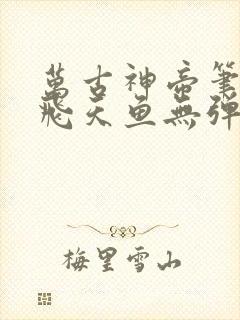 萬古神帝筆
飛天魚無彈
梅里雪山